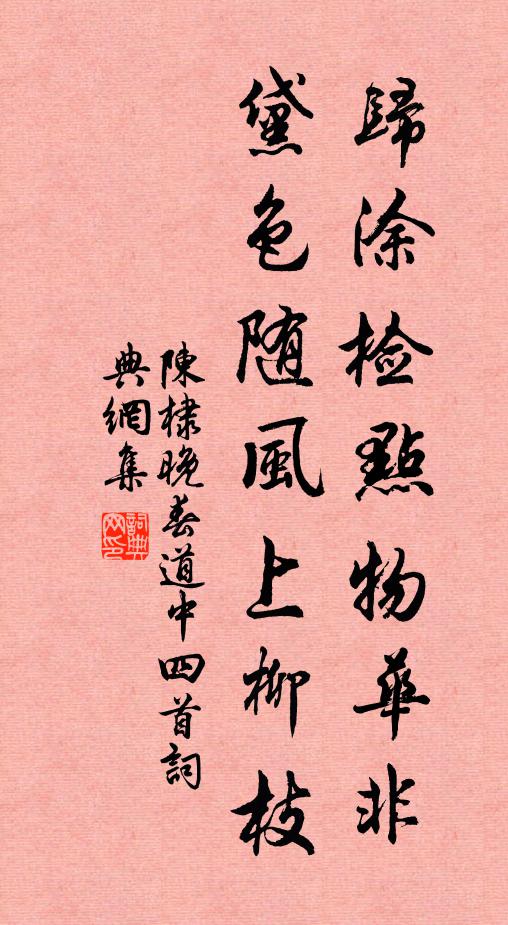 歸涂檢點物華非
黛色随風上柳枝
陳棣晚春道中四首詞
典網集
詞典網印